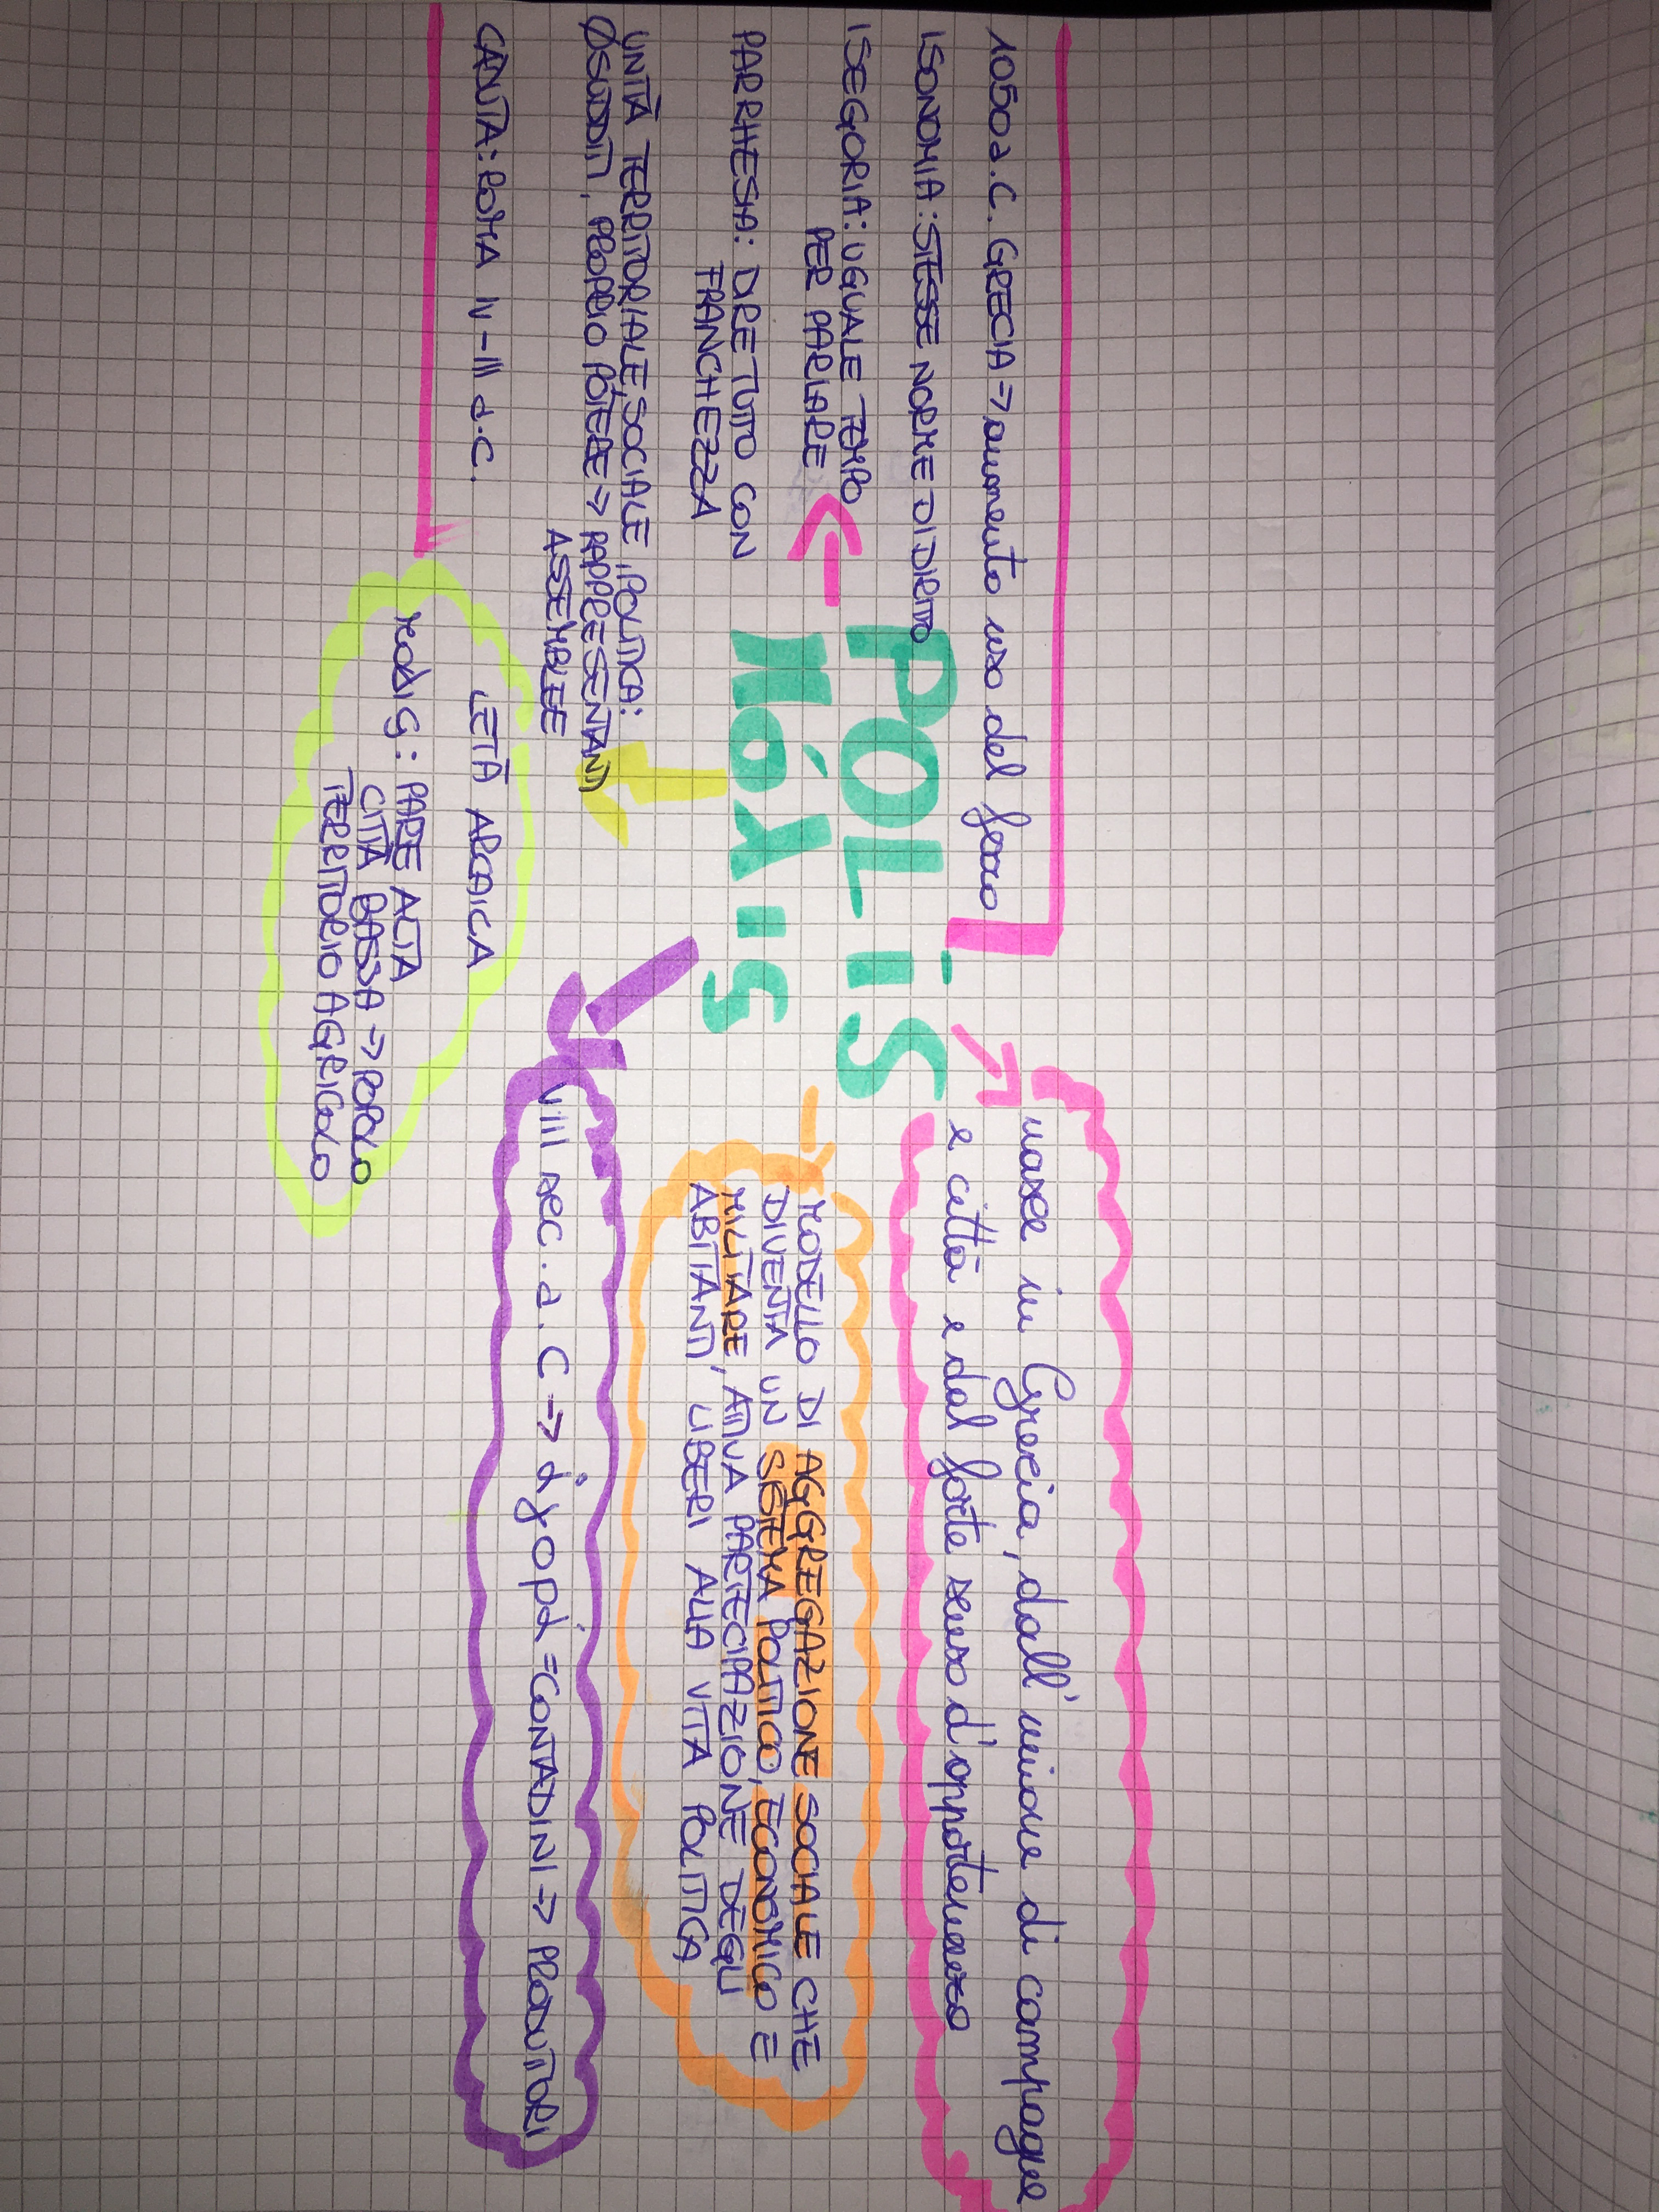 1050 a.C. GRECIA → aumento uso del ferro
ISONOMIA: STESSE NORME DI DIRITTO
ISEGORIA: UGUALE TEMPO
PER PARLARE
PARRHESIA: DIRE TUTTO CON
FRANCHEZZA
UNITÀ TERRITORIALE, SOCIALE, POLITICA:
Ø SUDDITI, PROPRIO POTERE → RAPPRESENTANTI
ASSEMBLEE
CADUTA: ROMA IV-III a.C.
POLIS
πόλις
nasce in Grecia, dall'unione di campagne
e città e dal forte senso d'appartenenza
MODELLO DI AGGREGAZIONE SOCIALE CHE
DIVENTA UN SISTEMA POLITICO, ECONOMICO E
MILITARE, ATTIVA PARTECIPAZIONE DEGLI
ABITANTI LIBERI ALLA VITA POLITICA
VIII sec. a.C → ἀγορά = CONTADINI → PRODUTTORI
ETÀ ARCAICA
: PARTE ALTA
CITTÀ BASSA → POPOLO
TERRITORIO AGRICOLO